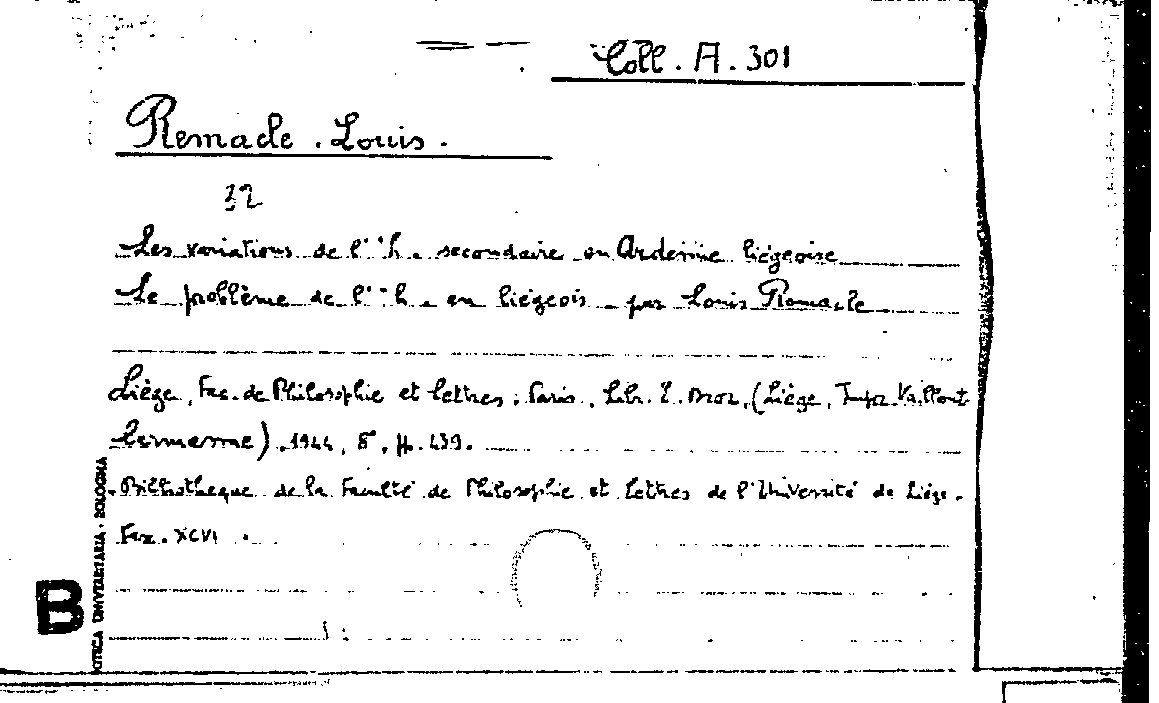 Coll. A. 301
Remacle. Louis.
32
Les variations de l' "h. secondaire en Ardenne liégeoise
Le problème de l' "h. en liégeois. par Louis Remacle
Liège, Fac. de Philosophie et lettres. Paris. Libr. E. Droz, (Liège, Impr. Vaillant
Carmanne). 1944, 8°, pp. 439.
Bibliotheque de la Faculté de Philosophie et Lettres de l'Université de Liége.
Fax. XCVI.
B
OTECA UNIVERSITARIA - BOLOGNA